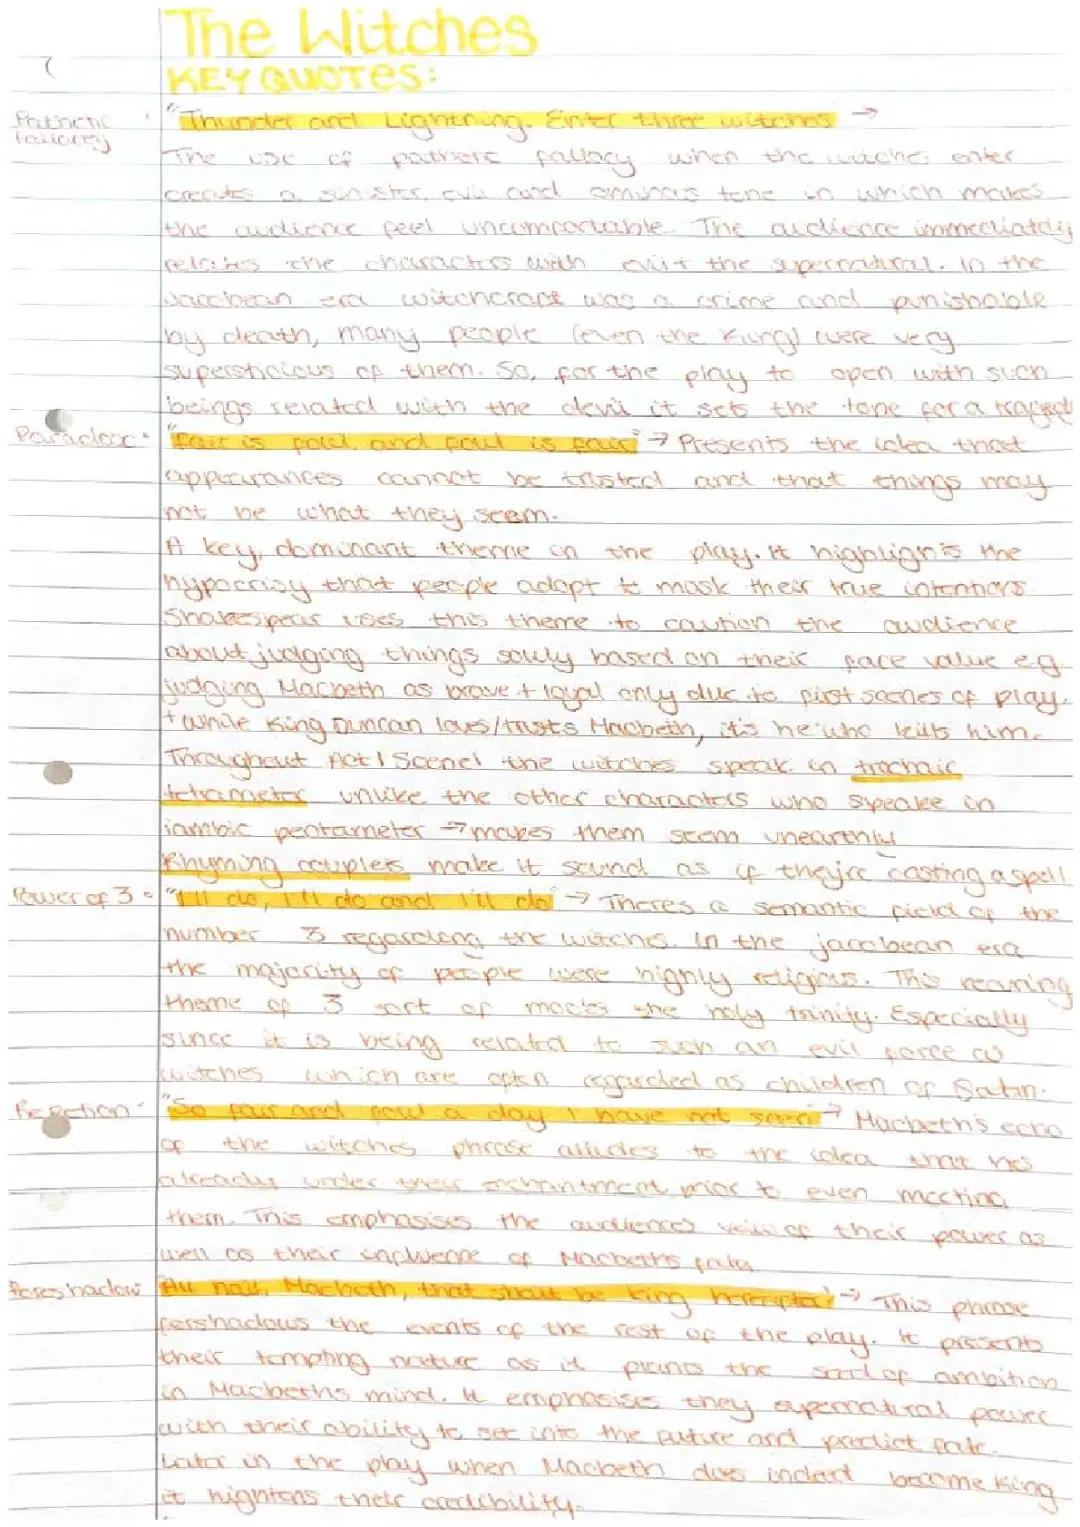 The Witches
KEY QUOTES:
Pathetic fallacy
"Thunder and Lightning. Enter three witches →
The use of pathetic fallacy when the witches enter
creates a sinister, evil and ominous tone in which makes
the audience feel uncomfortable. The audience immediately
relates the characters with evil + the supernatural. In the
Jacobean era witchcraft was a crime and punishable
by death, many people (even the King) were very
superstitious of them. So, for the play to open with such
beings related with the devil it sets the tone for a tragedy
Paradox "Fair is foul and foul is fair" → Presents the idea that
appearances cannot be trusted and that things may
not be what they seem.
A key, dominant theme in the play. It highlights the
hypocrisy that people adopt to mask their true intentions
Shakespear uses this theme to caution the audience
about judging things souly based on their face value e.g.
judging Macbeth as brave + loyal only due to first scenes of play.
+ while King Duncan loves/trusts Macbeth, it's he who kills him.
Throughout Act 1 Scene 1 the witches speak in trochaic
tetrameter unlike the other characters who speake in
iambic pentameter → makes them seem unearthly
Rhyming couplets make it sound as if they're casting a spell
Power of 3 "I'll do, I'll do and I'll do" → Theres a semantic field of the
number 3 regardeng the witches. In the jacobean era
the majority of people were highly religious. This recurring
theme of 3 sort of mocks the holy trinity. Especially
since it is being related to such an evil force as
witches which are often regarded as children of Satan.
Repetion "So fair and foul a day I have not seen" → Macbeth's echo
of the witches phrase alludes to the idea that he's
already under their enchantment prior to even meeting
them. This emphasises the audiences veiw of their power as
well as their influence of Macbeth's fate.
Foreshadow All hail, Macbeth, that shalt be king hereafter' → This phrase
forshadows the events of the rest of the play. It presents
their tempting nature as it plants the seed of ambition
in Macbeths mind. It emphasises they supernatural power
with their ability to see into the future and predict fate.
Later in the play when Macbeth does indeed become King
it hightens their credibility.